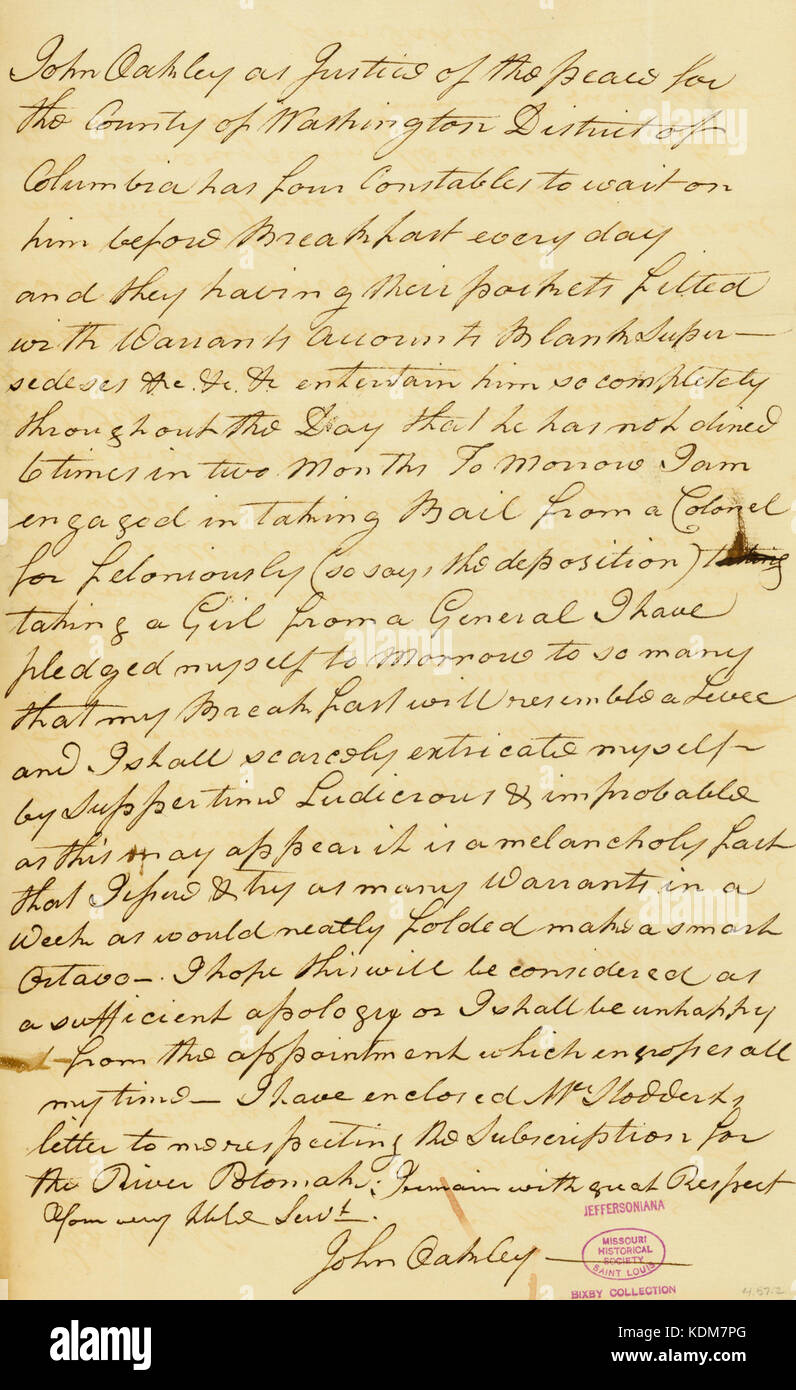 John Oakley as Justice of the peace for
the County of Washington District of
Columbia has four Constables to wait on
him before Breakfast every day
and they having their pockets filled
with Warrants Accounts Blank Super-
sedeses &c. &c. &c entertain him so completely
throughout the Day that he has not dined
6 times in two Months To Morrow I am
engaged in taking Bail from a Colonel
for feloniously (so says the deposition) taking
taking a Girl from a General I have
pledged myself to Morrow to so many
that my Breakfast will resemble a Levee
and I shall scarcely extricate myself
by Supper time Ludicrous & improbable
as this may appear it is a melancholy fact
that I issue & try as many Warrants in a
Week as would neatly folded make a smart
Octavo - . I hope this will be considered as
a sufficient apology or I shall be unhappy
from the appointment which engrosses all
my time - I have enclosed Mr Stodderts
letter to me respecting the Subscription for
the River Potomak; I remain with great Respect
Your very Hble Servt.
John Oakley
JEFFERSONIANA
MISSOURI
HISTORICAL
SOCIETY
SAINT LOUIS
BIXBY COLLECTION
alamy
alamy stock photo
KDM7PG
www.alamy.com